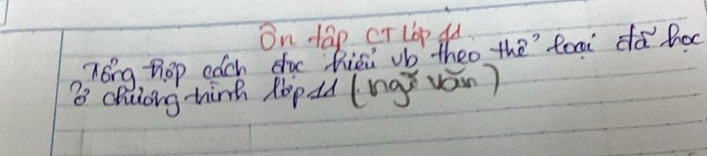 Ôn tập CT Lớp 11
Tổng hợp cách đọc hiểu vb theo thể loại đã học
ở chương trình lớp 11 (ngữ văn)